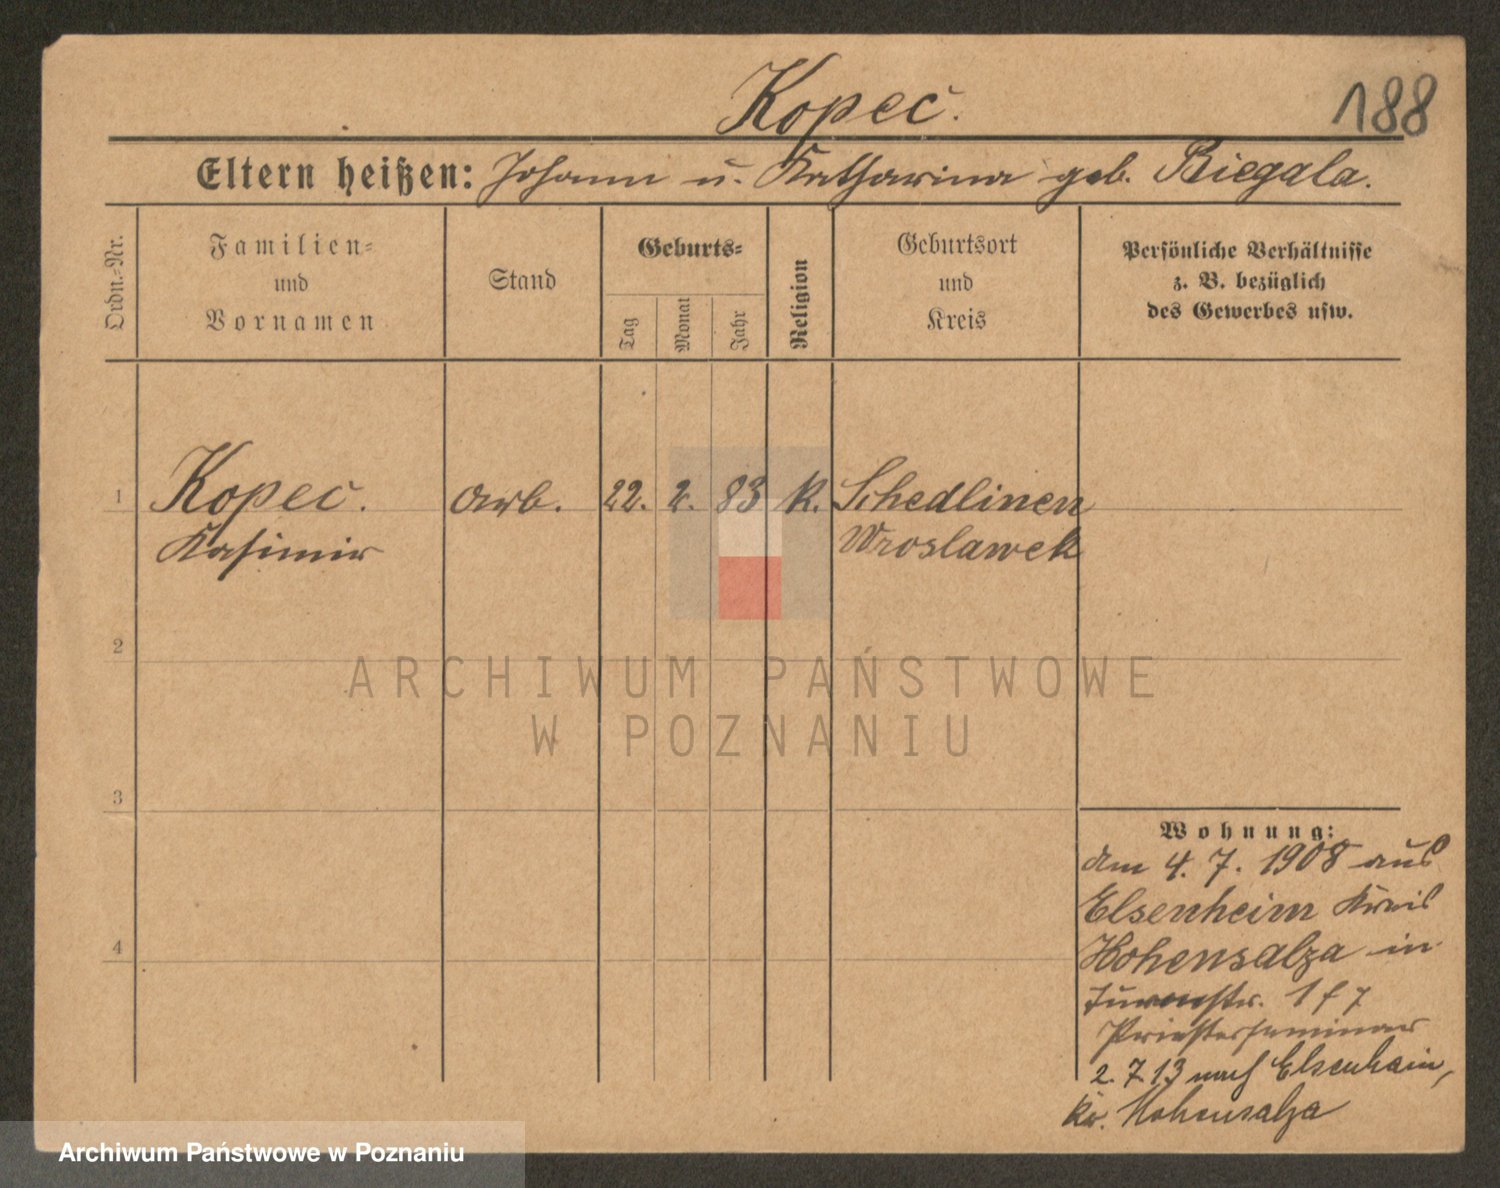 Kopeć.
188
Eltern heißen: Johann u. Katharina geb. Biegala.
Ordn.=Nr.
Familien=
und
Vornamen
Stand
Geburts=
Tag
Monat
Jahr
Religion
Geburtsort
und
Kreis
Persönliche Verhältnisse
z. B. bezüglich
des Gewerbes usw.
1 Kopeć. Arb. 22. 2. 83 k. Schedlinen
Kasimir Wroslawek
2
3
4
Wohnung:
am 4. 7. 1908 aus
Elsenheim Kreis
Hohensalza in
1 f 7
Priesterseminar
2. 7.13 nach Elsenheim,
Kr. Hohensalza
ARCHIWUM PAŃSTWOWE
W POZNANIU
Archiwum Państwowe w Poznaniu